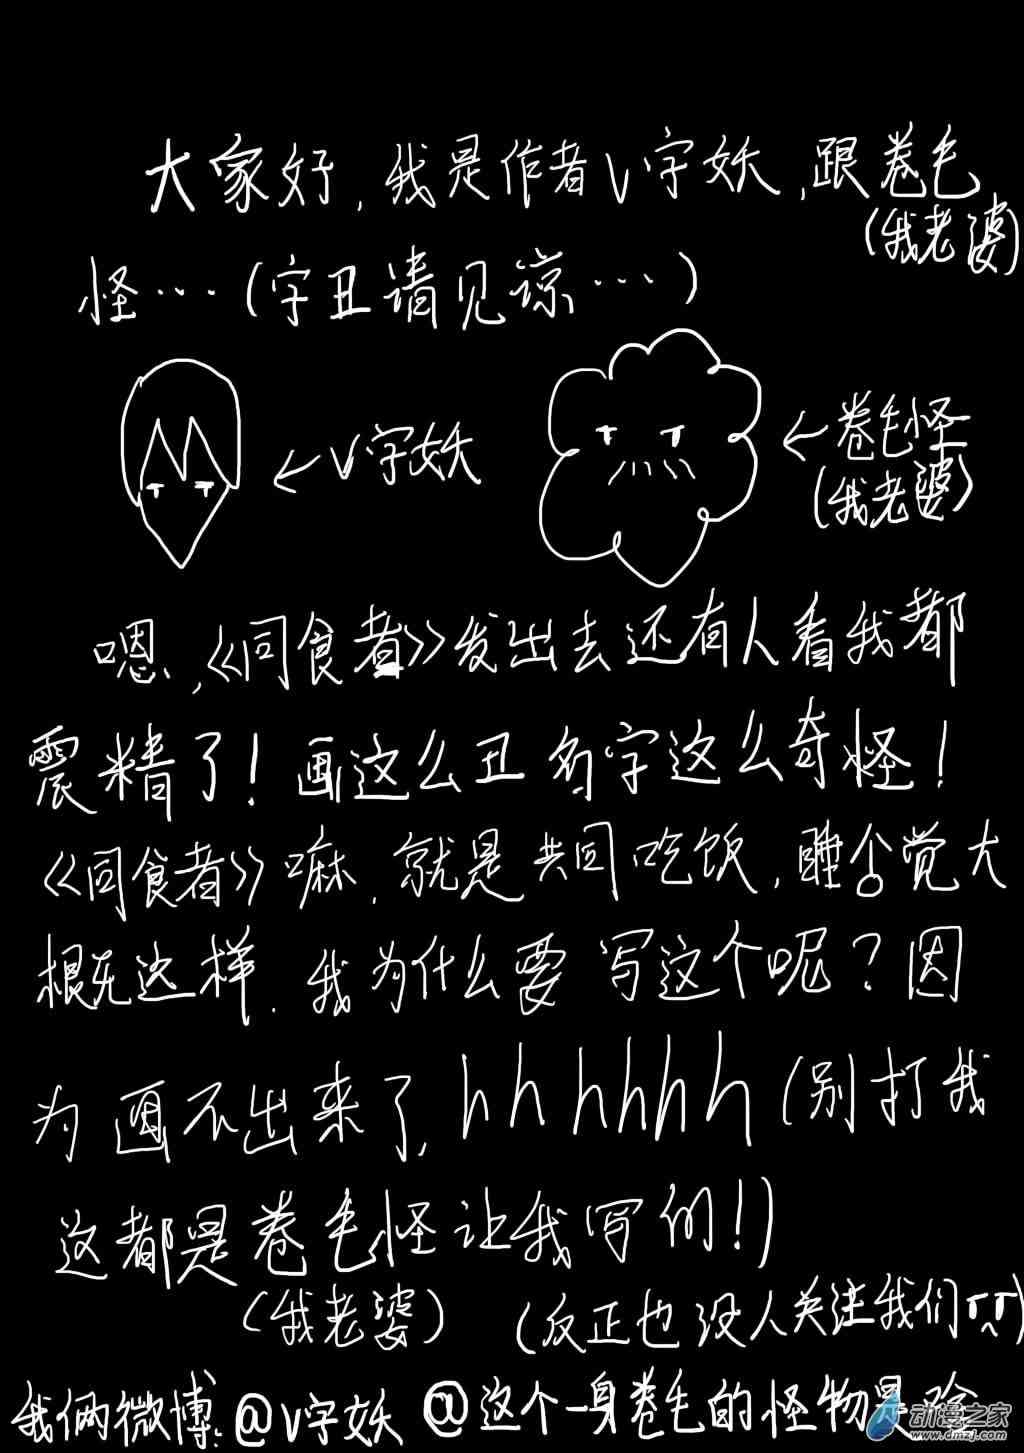 大家好,我是作者V字妖,跟卷毛
(我老婆)
怪…(字丑请见谅…)
←V字妖
←卷毛怪
(我老婆)
嗯,《同食者》发出去还有人看我都
震精了!画这么丑名字这么奇怪!
《同食者》嘛,就是共同吃饭,睡个觉大
概这样.我为什么要写这个呢?因
为画不出来了,hhhhhh(别打我
这都是卷毛怪让我写的!)
(我老婆)
(反正也没人关注我们TT)
我俩微博:@V字妖 @这个一身卷毛的怪物是
动漫之家
www.dmzj.com